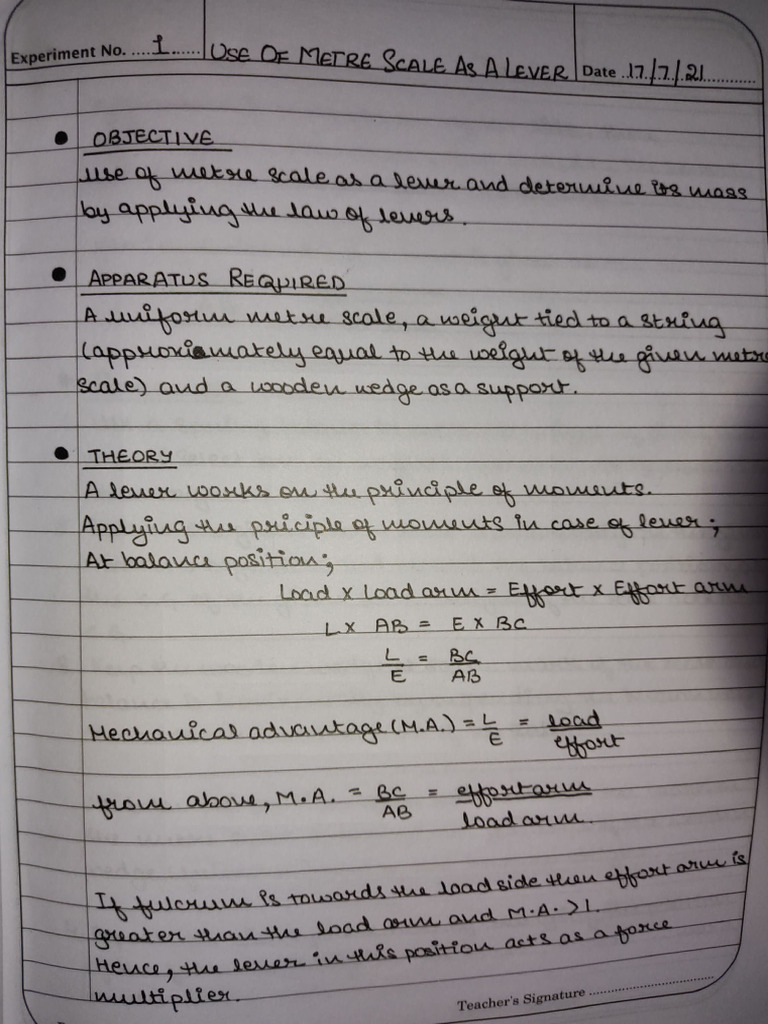 Experiment No. ....1...... USE OF METRE SCALE AS A LEVER Date ..17./7./.21............
• OBJECTIVE
Use of metre scale as a lever and determine its mass
by applying the law of levers.
• APPARATUS REQUIRED
A uniform metre scale, a weight tied to a string
(approximately equal to the weight of the given metre
scale) and a wooden wedge as a support.
• THEORY
A lever works on the principle of moments.
Applying the priciple of moments in case of lever;
At balance position;
Load x Load arm = Effort x Effort arm
L x AB = E x BC
L/E = BC/AB
Mechanical advantage (M.A.) = L/E = load/effort
from above, M.A. = BC/AB = effort arm/load arm.
If fulcrum is towards the load side then effort arm is
greater than the load arm and M.A. > 1.
Hence, the lever in this position acts as a force
multiplier.
Teacher's Signature ....................................